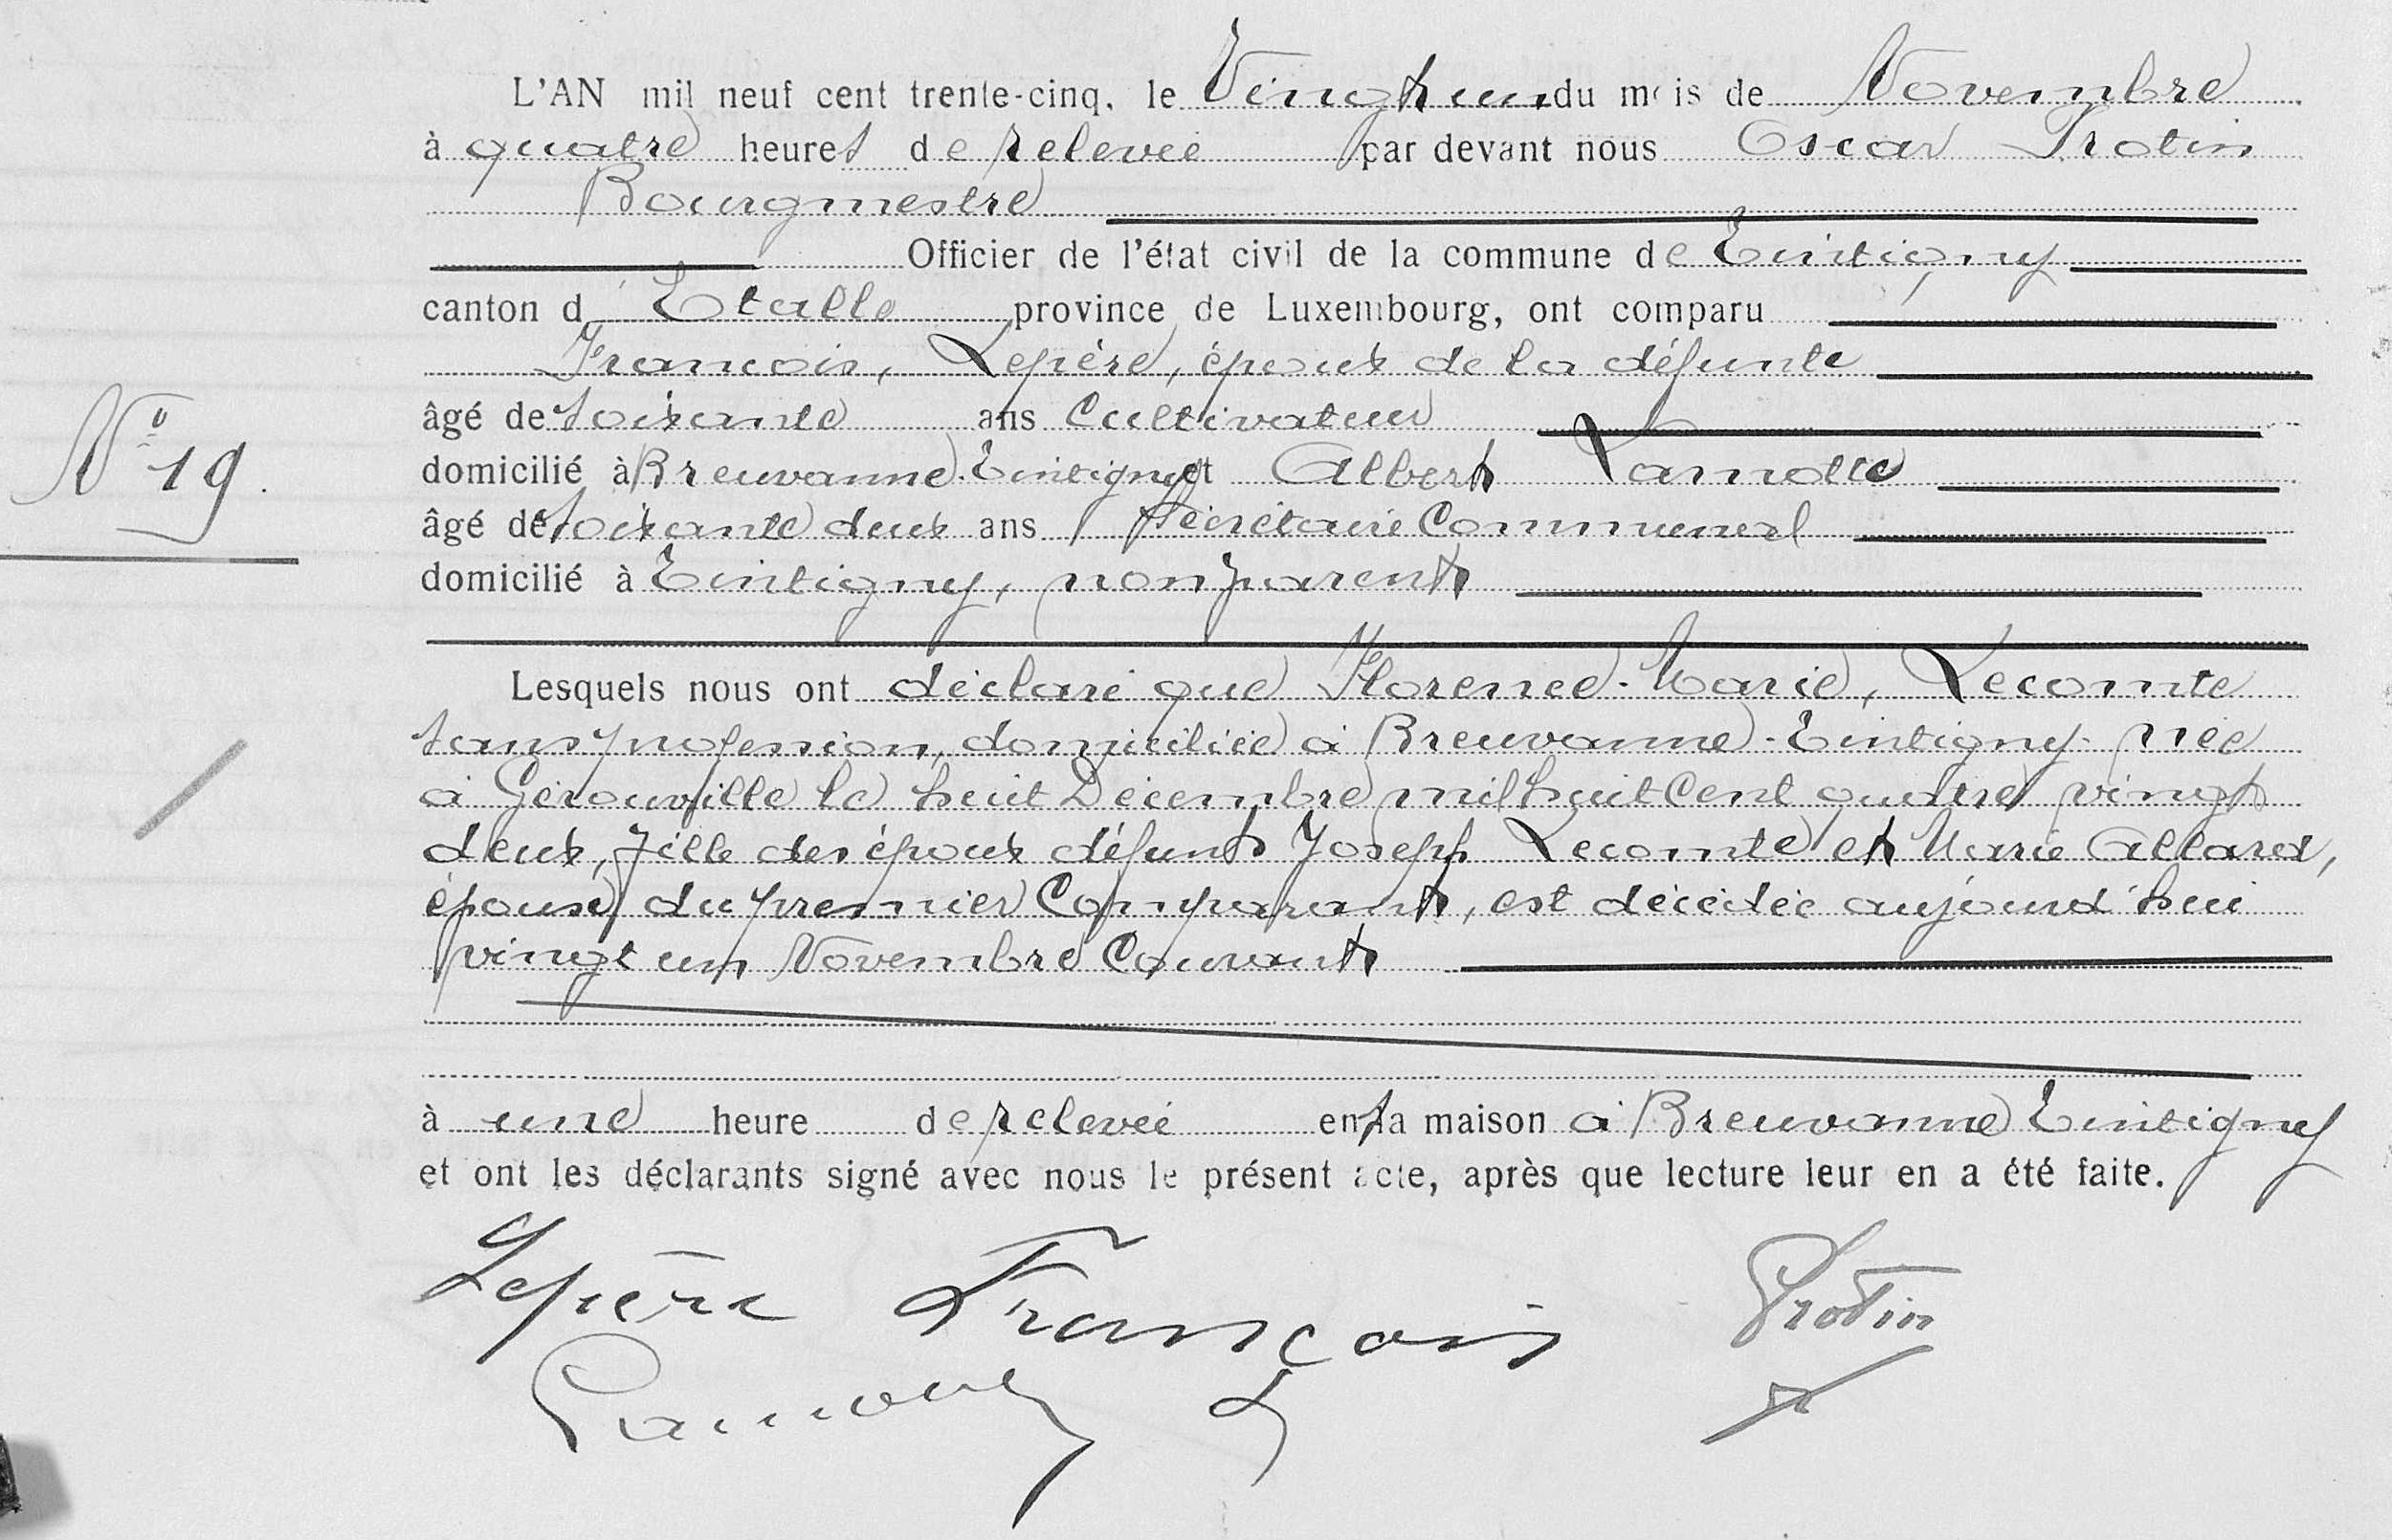 L'AN mil neuf cent trente-cinq, le Vingt un du mois de Novembre
à quatre heures de relevée par devant nous Oscar Protin
Bourgmestre
Officier de l'état civil de la commune de Tintigny
canton d'Etalle province de Luxembourg, ont comparu
François, Lepère, époux de la défunte
âgé de soixante ans Cultivateur
domicilié à Breuvanne-Tintigny et Albert Lamotte
N° 19.
âgé de soixante deux ans Secrétaire Communal
domicilié à Tintigny, non parent
Lesquels nous ont déclaré que Florence-Marie, Lecomte
sans profession, domiciliée à Breuvanne-Tintigny née
à Gérouville le huit Décembre mil huit cent quatre vingt
deux, fille des époux défunts Joseph Lecomte et Marie Allard,
épouse du premier Comparant, est décédée aujourd'hui
vingt un Novembre Courant
à une heure de relevée en sa maison à Breuvanne Tintigny
et ont les déclarants signé avec nous le présent acte, après que lecture leur en a été faite.
Lepère François Protin
Lamotte